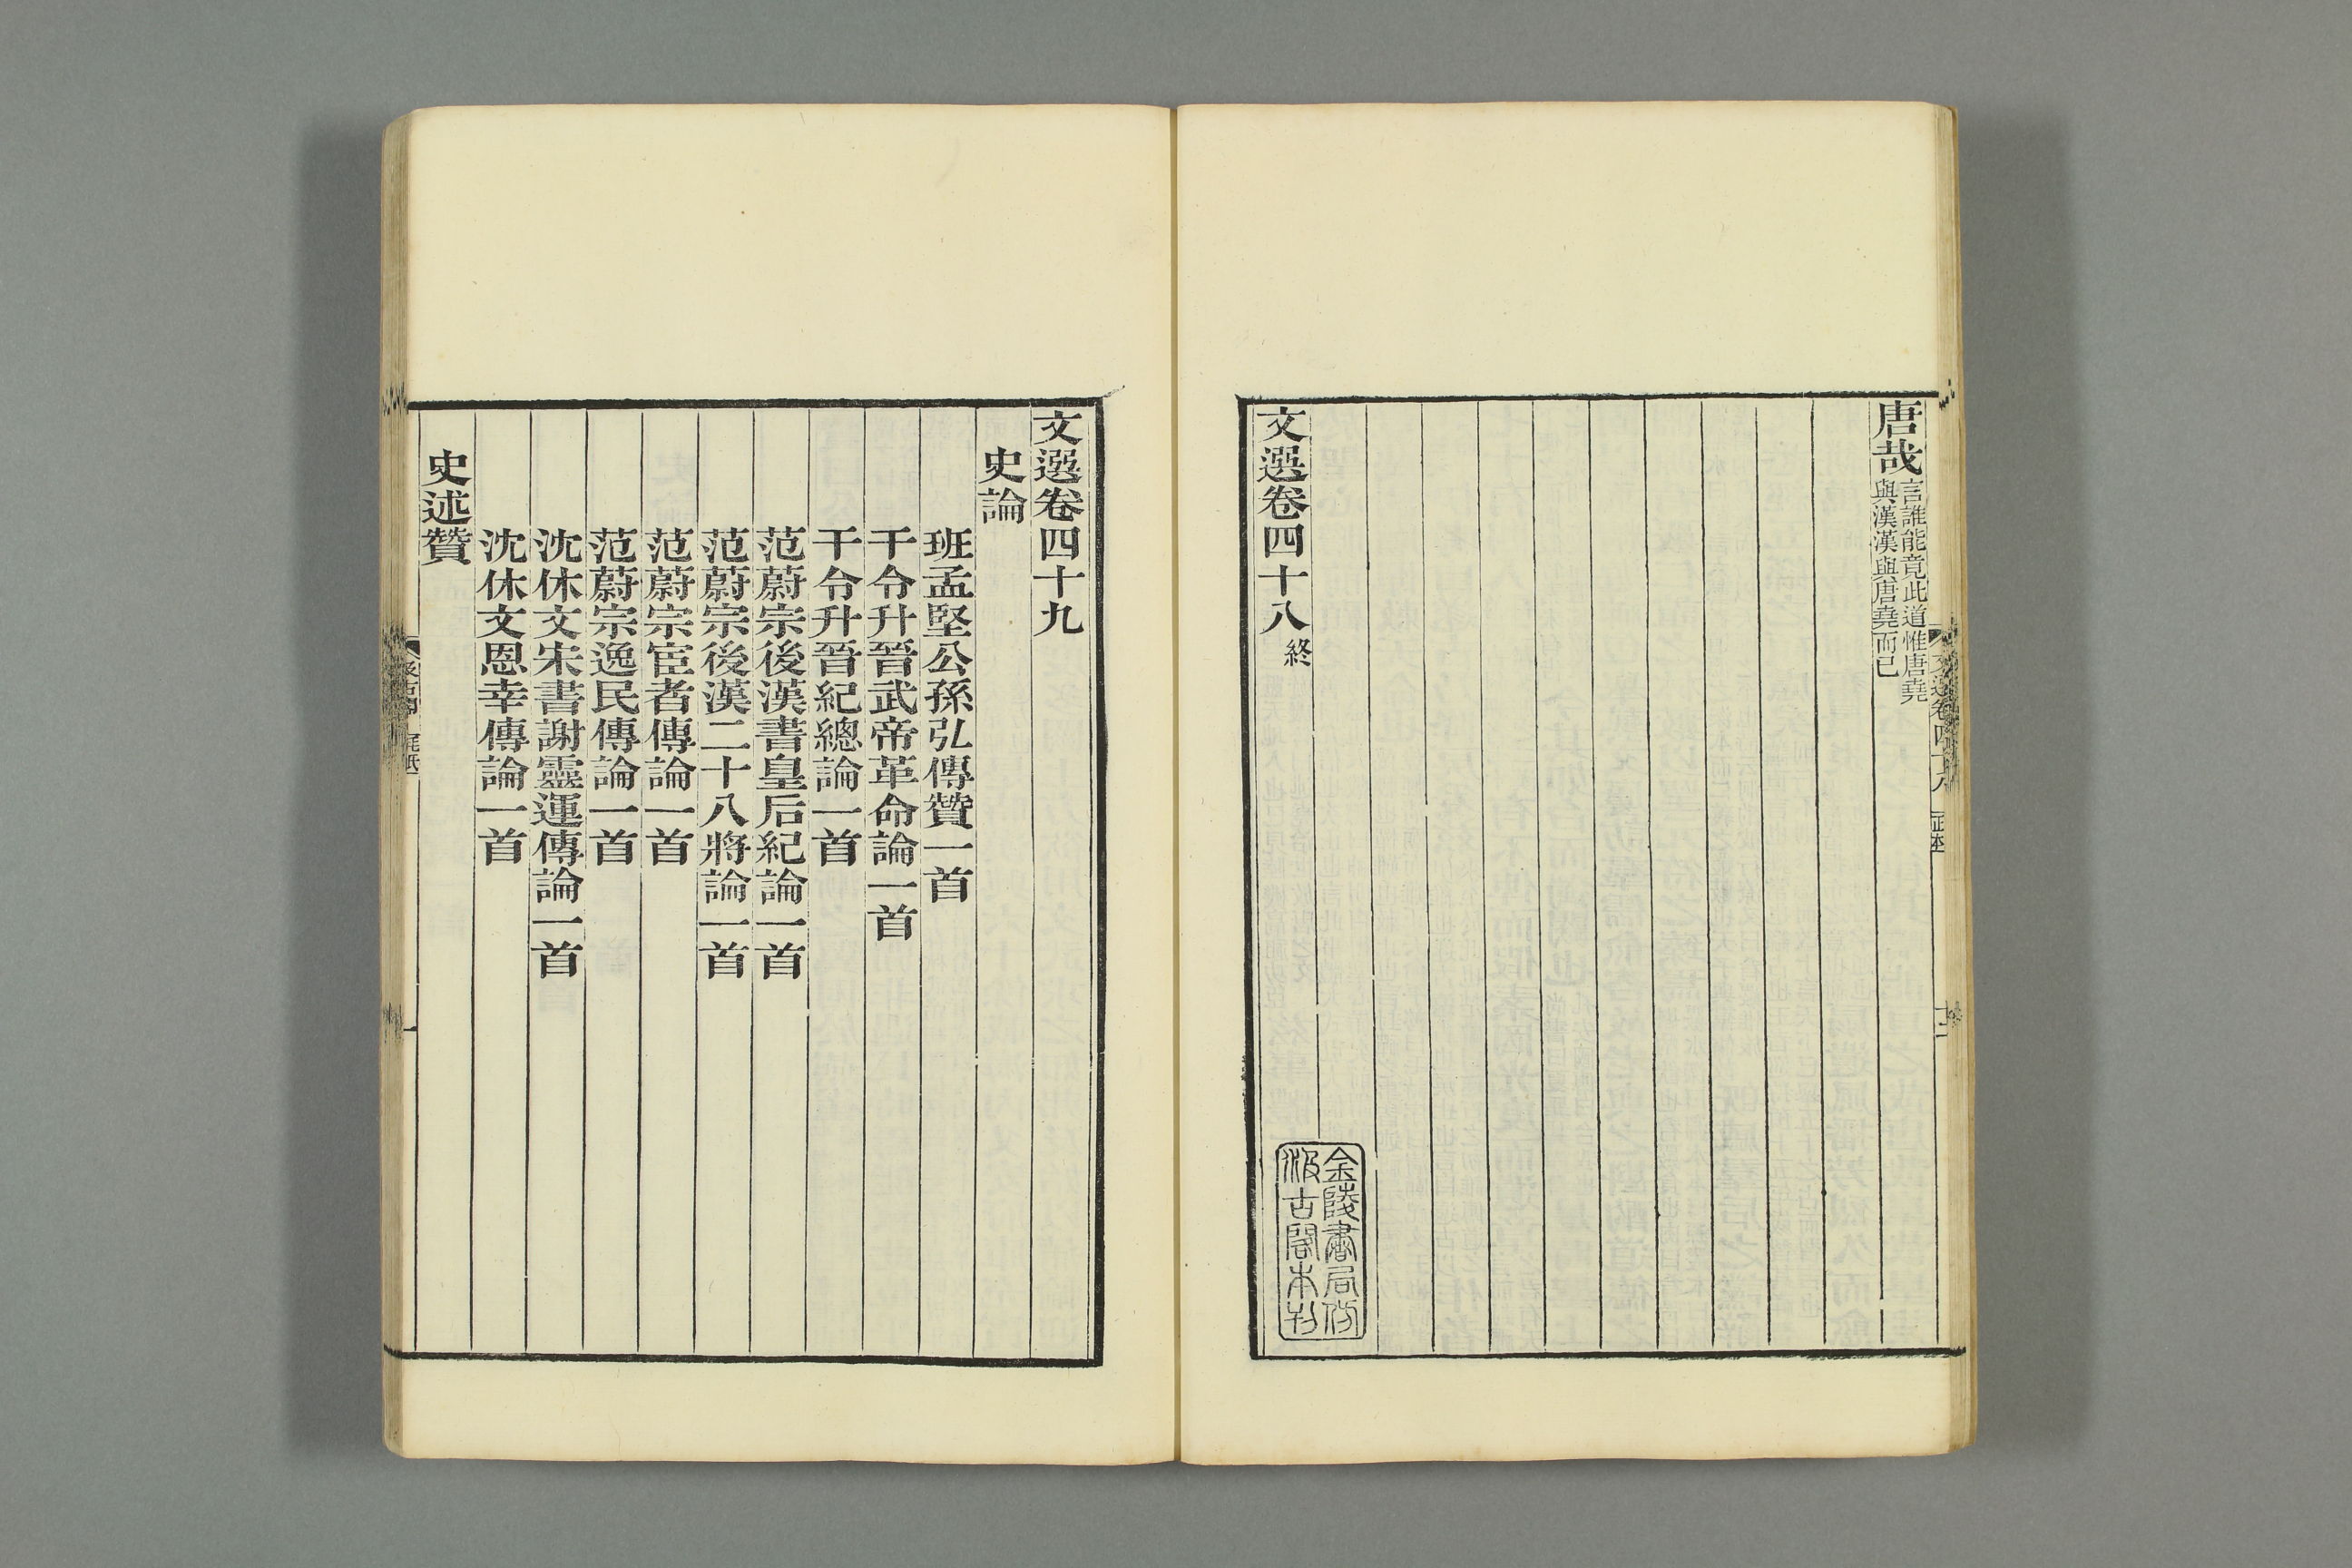 唐哉
言誰能竟此道惟唐堯
與漢漢與唐堯而已
文選卷四十八
文選卷四十八終
金陵書局仿
汲古閣本刊
文選卷四十九
史論
班孟堅公孫弘傳贊一首
干令升晉武帝革命論一首
干令升晉紀總論一首
范蔚宗後漢書皇后紀論一首
范蔚宗後漢二十八將論一首
范蔚宗宦者傳論一首
范蔚宗逸民傳論一首
沈休文宋書謝靈運傳論一首
沈休文恩幸傳論一首
史述贊